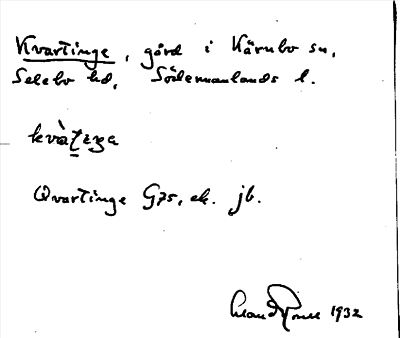 Kvartinge, gård i Kärnbo sn,
Selebo hd, Södermanlands l.
kvàtiŋe
Qvartinge Gps, ek. jb.
1932